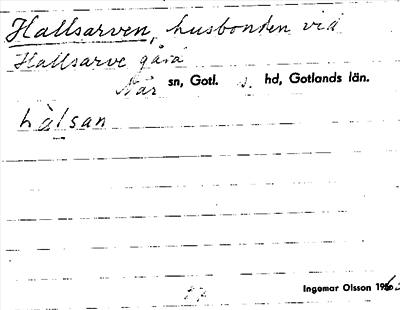 Hallsarven, husbonden vid
Hallsarve gård
När sn, Gotl. s. hd, Gotlands län.
hàlsan
Ingemar Olsson 1960